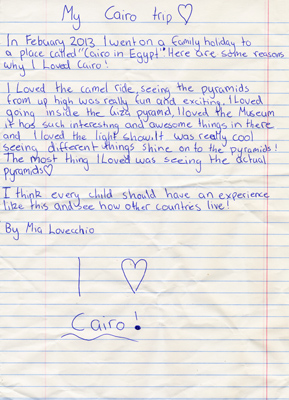 My Cairo trip ♡
In Febuary 2013 I went on a family holiday to
a place called "Cairo in Egypt". Here are some reasons
why I Loved Cairo!
I Loved the camel ride, seeing the pyramids
from up high was really fun and exciting. I Loved
going inside the Giza pyramid, I loved the Museum
it has such interesting and awesome things in there
and I loved the light show. It was really cool
seeing different things shine on to the pyramids!
The most thing I Loved was seeing the actual
pyramids♡
I think every child should have an experience
like this and see how other countres live!
By Mia Lovecchio
I ♡
Cairo!